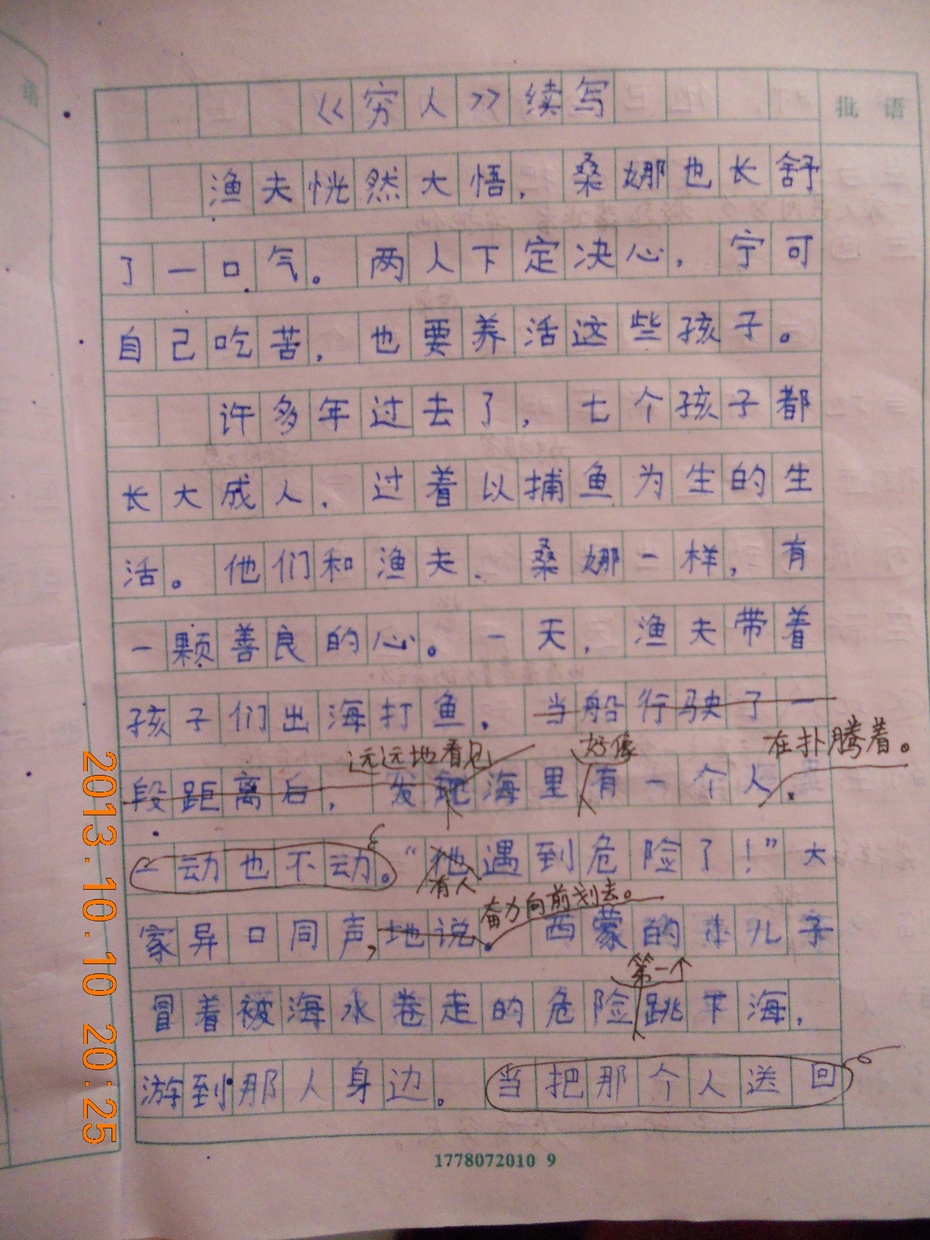 《穷人》续写
批语
渔夫恍然大悟，桑娜也长舒
了一口气。两人下定决心，宁可
自己吃苦，也要养活这些孩子。
许多年过去了，七个孩子都
长大成人，过着以捕鱼为生的生
活。他们和渔夫、桑娜一样，有
一颗善良的心。一天，渔夫带着
孩子们出海打鱼。当船行驶了一
远远地看见 好像 在扑腾着。
段距离后，发现海里有一个人，
一动也不动。“他遇到危险了！”大
有人 奋力向前划去。
家异口同声地说。西蒙的小儿子
第一个
冒着被海水卷走的危险跳下海，
游到那人身边。当把那个人送回
1778072010 9
2013.10.10 20:25